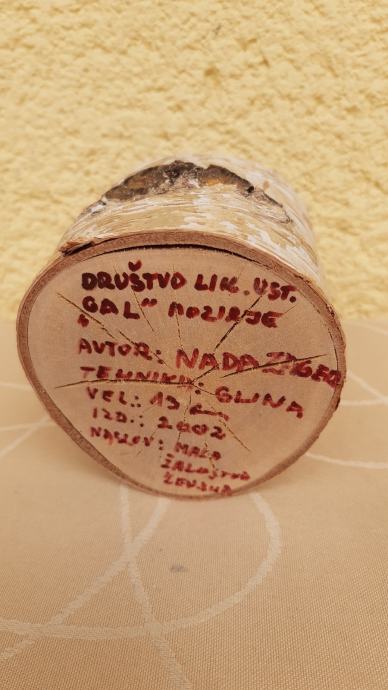 DRUŠTVO LIK. UST.
GAL" MOZIRJE
AVTOR: NADA ZAGER
TEHNIKA: GLINA
VEL.: 13 cm
IZD.: 2002
NASLOV: MALA
ŽALOSTNA